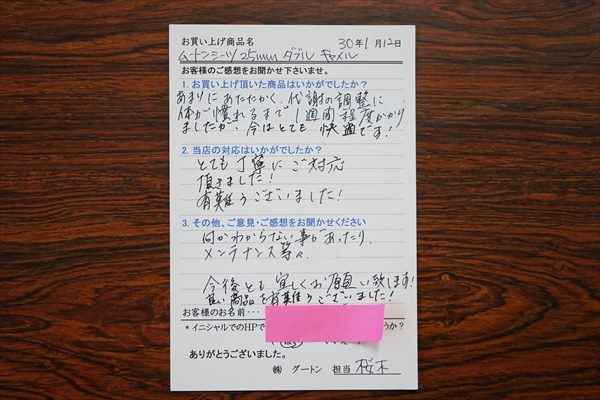 お買い上げ商品名 30年1月12日
ムートンシーツ25mm ダブル キャメル
お客様のご感想をお聞かせ下さいませ。
1. お買い上げ頂いた商品はいかがでしたか？
あまりにあたたかく、代謝の調整に
体が慣れるまで1週間程度かかり
ましたが、今はとても快適です！
2. 当店の対応はいかがでしたか？
とても丁寧にご対応
頂きました！
有難うございました！
3. その他、ご意見・ご感想をお聞かせください
何かわからない事があったり、
メンテナンス等々、
今後とも宜しくお願い致します！
良い商品を有難うございました！
お客様のお名前・・・
* イニシャルでのHPで うか？
ありがとうございました。
㈱ グートン 担当 桜木